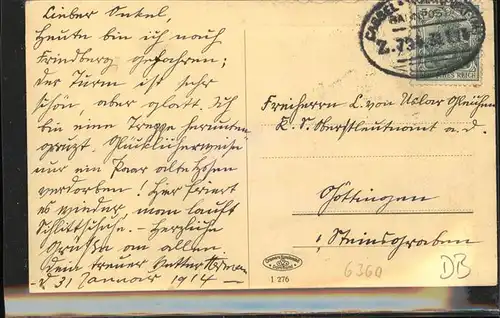 Lieber Onkel,
Heute bin ich nach
Friedberg gefahren;
der Turm ist sehr
schön, aber glatt. Ich
bin eine Treppe herunter
gerutzt. Glücklicherweise
nur ein Paar alte Hosen
verdorben! Hier friert
es wieder, man läuft
Schlittschuhe. Herzliche
Grüsse an allen
Dein treuer Vetter
d. 31 Januar 1914
CASSEL
BAHNPOST
Z. 73
REICH
Freiherrn L. von Uslar Gleichen
K. S. Oberstleutnant a. d.
Göttingen
Steinsgraben
1 276
6360
DB